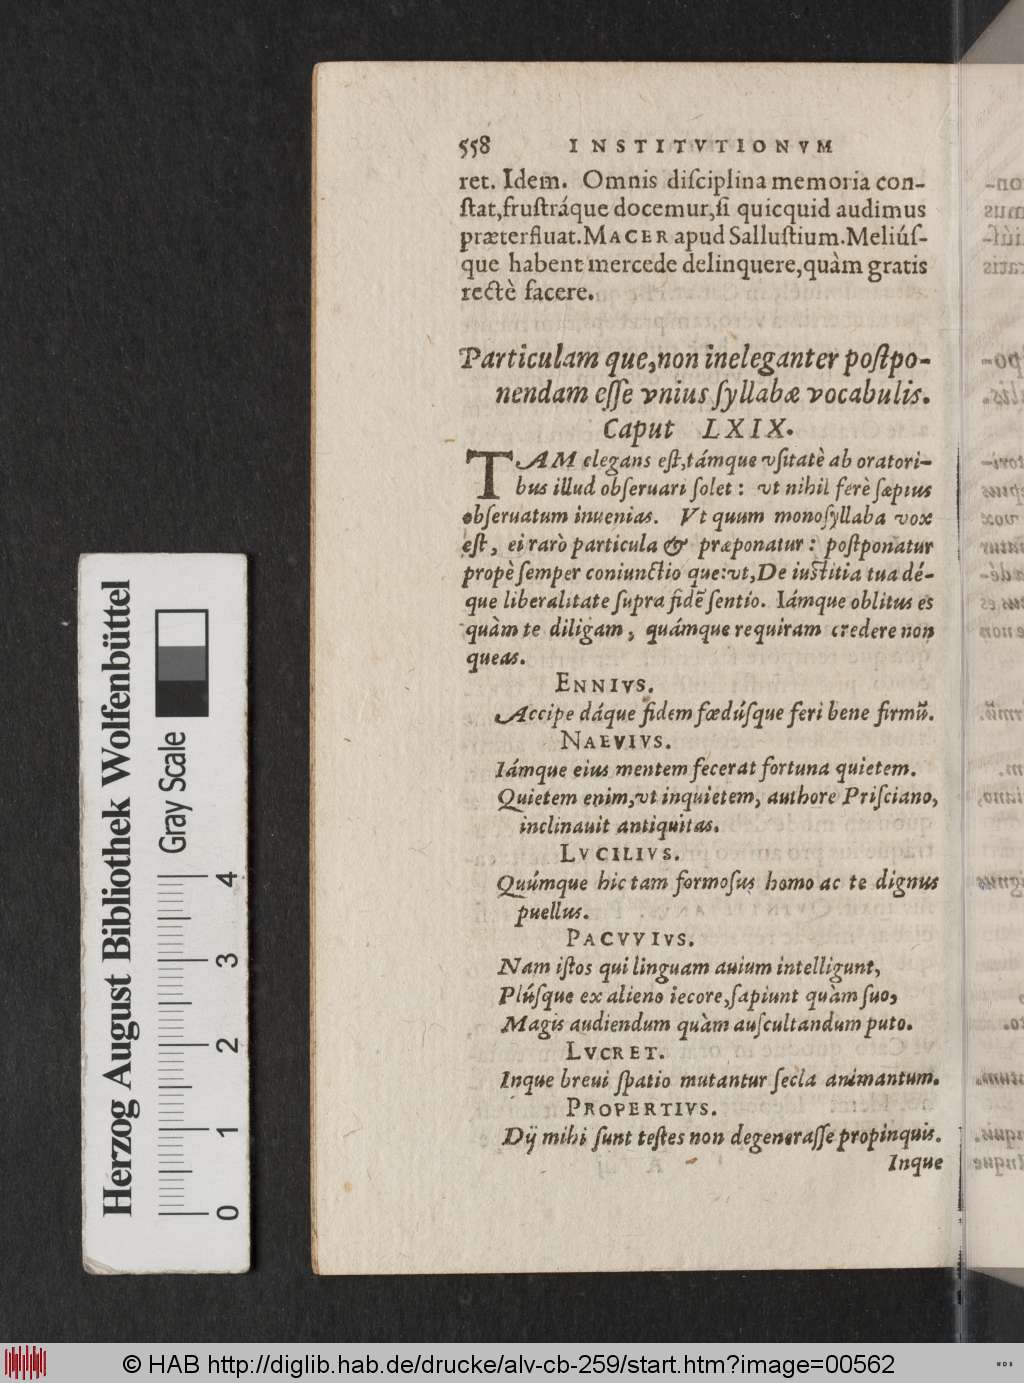 558 INSTITVTIONVM
ret. Idem. Omnis diſciplina memoria con-
ſtat,fruſtráque docemur,ſi quicquid audimus
præterfluat.MACER apud Salluſtium.Meliúſ-
que habent mercede delinquere,quàm gratis
rectè facere.
Particulam que,non ineleganter poſtpo-
nendam eſſe vnius ſyllabæ vocabulis.
Caput LXIX.
TAM elegans eſt,támque vſitatè ab oratori-
bus illud obſeruari ſolet: vt nihil ferè ſæpius
obſeruatum inuenias. Vt quum monoſyllaba vox
eſt, ei rarò particula & præponatur: poſtponatur
propè ſemper coniunctio que:vt,De iuſtitia tua dé-
que liberalitate ſupra fidẽ ſentio. Iámque oblitus es
quàm te diligam, quámque requiram credere non
queas.
ENNIVS.
Accipe dáque fidem fœdúſque feri bene firmũ.
NAEVIVS.
Iámque eius mentem fecerat fortuna quietem.
Quietem enim,vt inquietem, authore Priſciano,
inclinauit antiquitas.
LVCILIVS.
Quúmque hic tam formoſus homo ac te dignus
puellus.
PACVVIVS.
Nam iſtos qui linguam auium intelligunt,
Plúſque ex alieno iecore,ſapiunt quàm ſuo,
Magis audiendum quàm auſcultandum puto.
LVCRET.
Inque breui ſpatio mutantur ſecla animantum.
PROPERTIVS.
Dij mihi ſunt teſtes non degeneraſſe propinquis.
Inque
Herzog August Bibliothek Wolfenbüttel
Gray Scale
0 1 2 3 4
© HAB http://diglib.hab.de/drucke/alv-cb-259/start.htm?image=00562